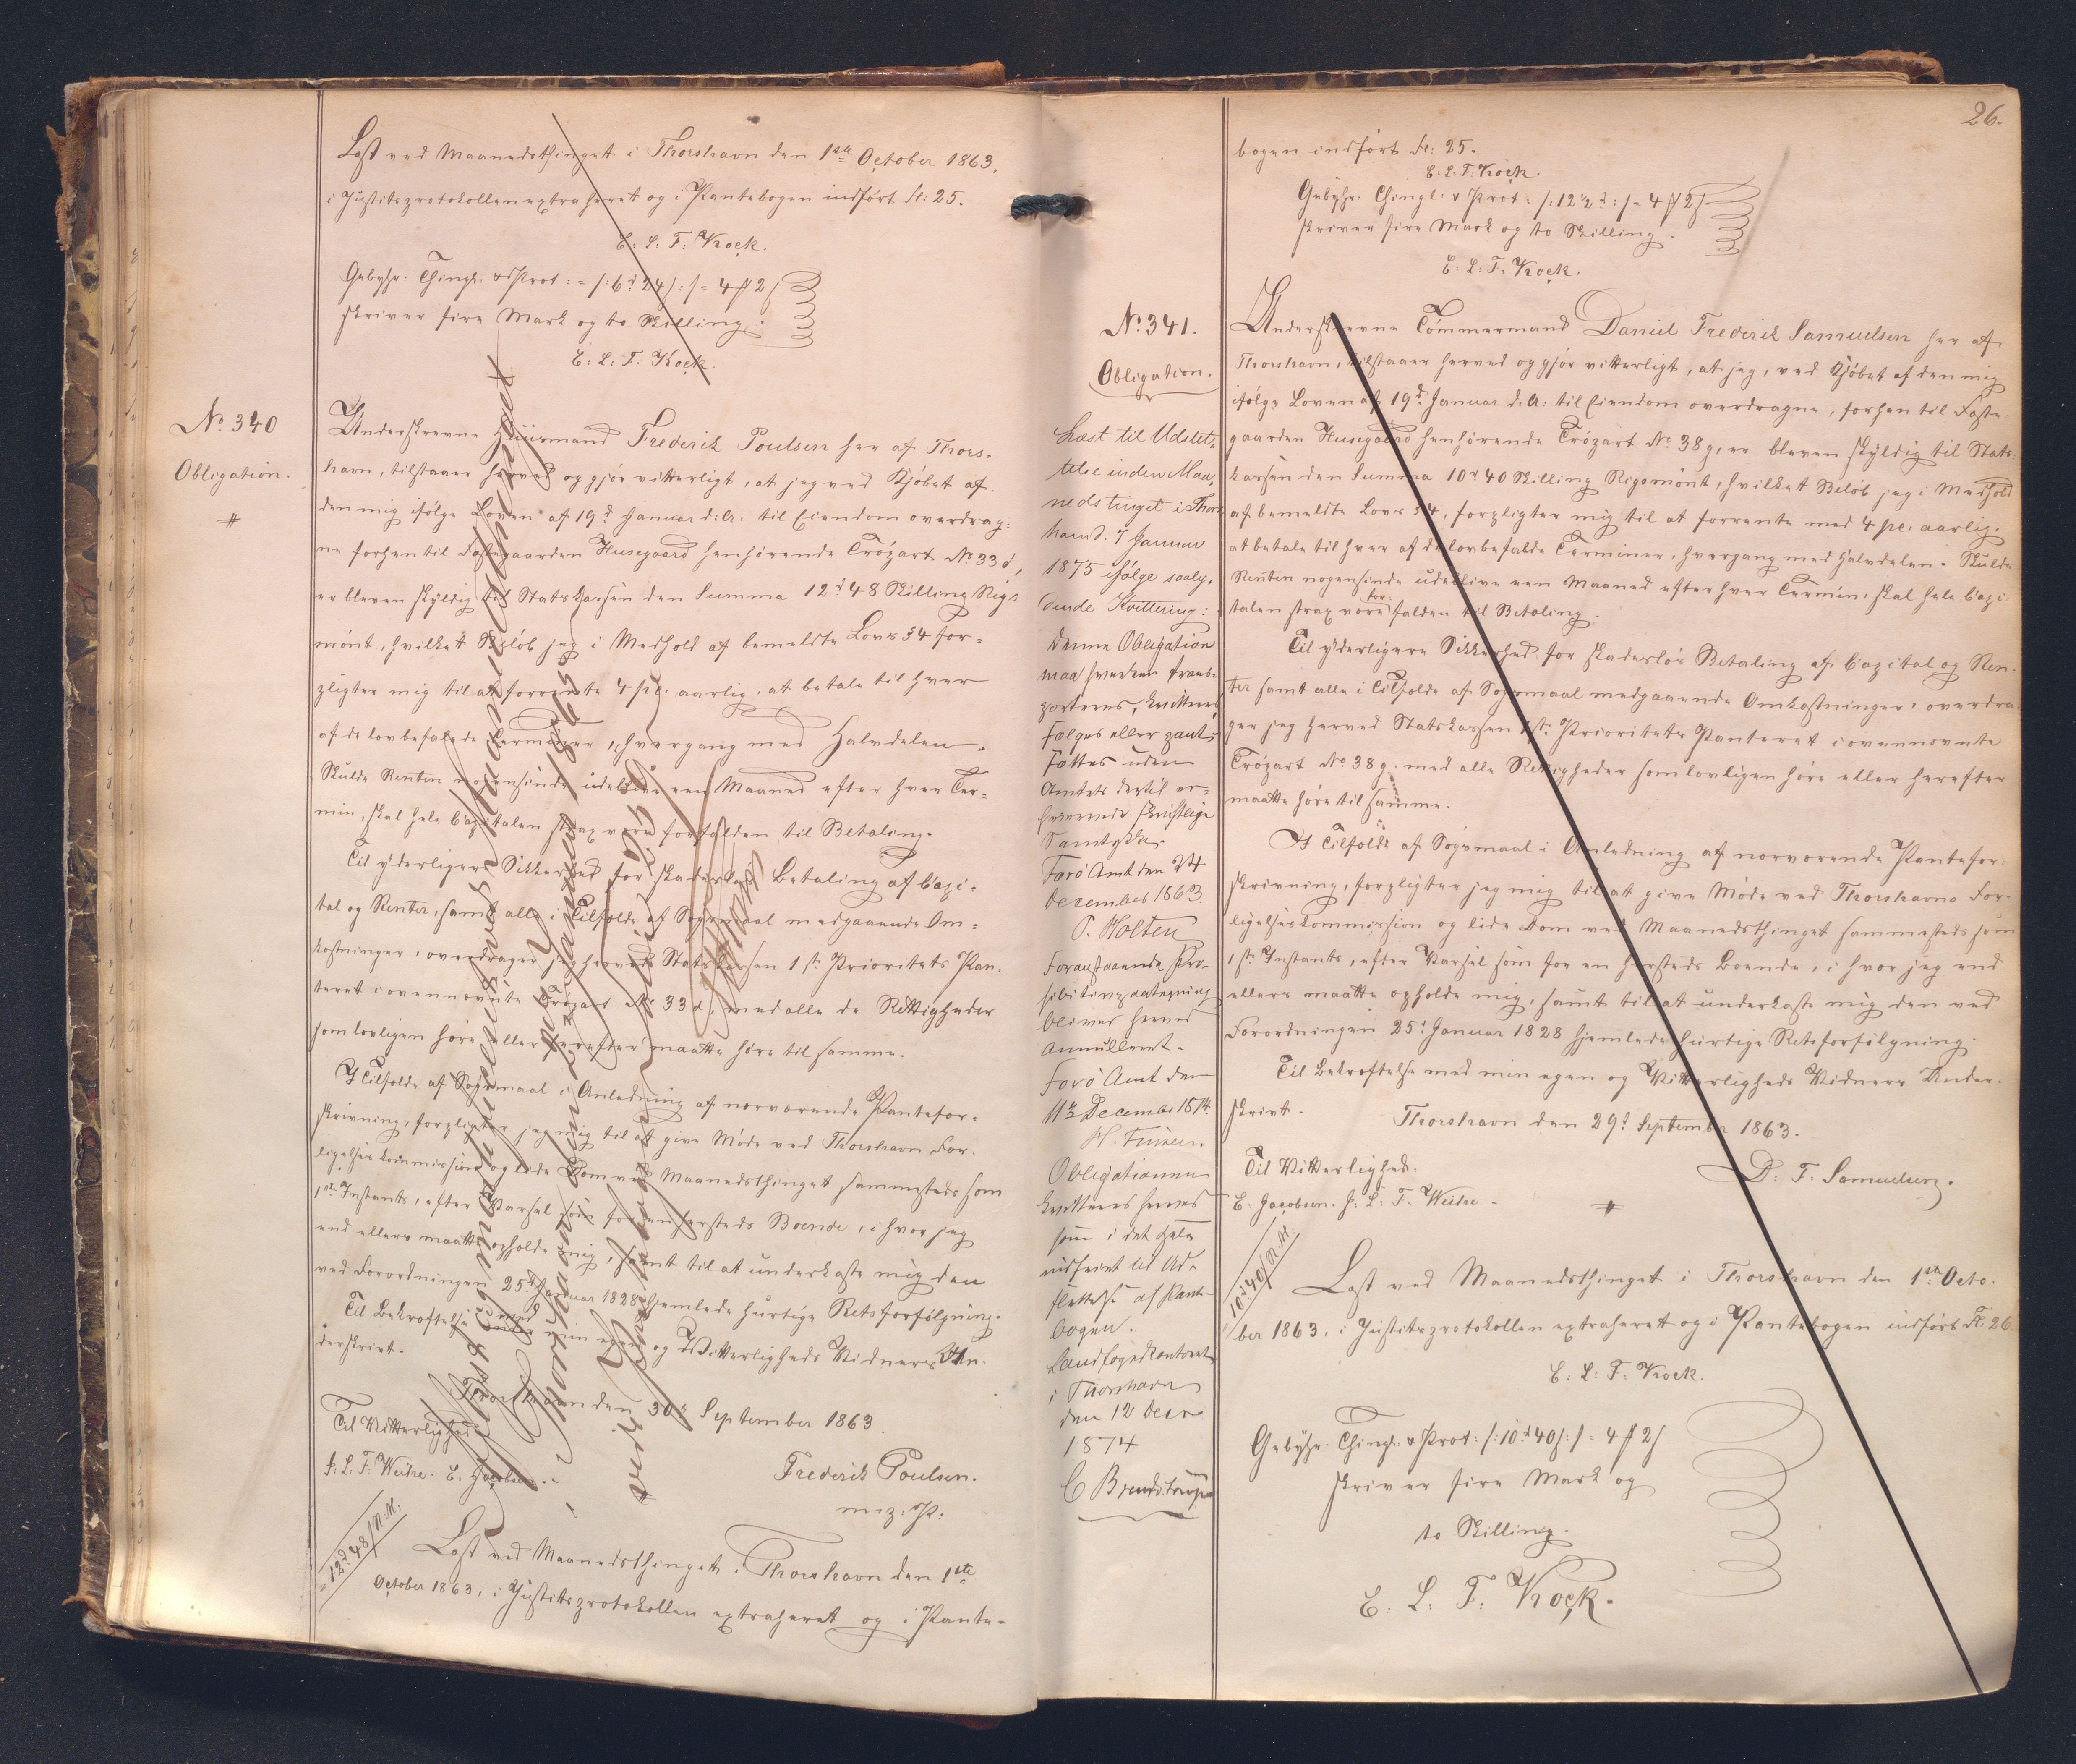 Læst ved Maanedsthinget i Thorshavn den 1ste October 1863,
i Justitsprotokollen extraheret og i Pantebogen indført Fl: 25.
E: L: T: Kock.
Gebyhr: Thingl. & Prot: = /: 6d 24/: /= 4 # 2 /
skriver fire Mark og to Skilling.
E: L: T: Kock.
No 340
Obligation.
Underskrevne Huusmand Frederik Poulsen her af Thors-
havn, tilstaaer herved og gjør vitterligt, at jeg ved Kjøbet af
den mig ifølge Loven af 19d Januar d: A: til Eiendom overdrag-
ne forhen til Fæstegaarden Husegaard henhørende Trøpart No 33d,
er bleven skyldig til Statskassen den Summa 12d 48 Skilling Rigs-
mønt, hvilket Beløb jeg i Medhold af bemeldte Lovs §4 for-
pligter mig til at forrente 4 pc. aarlig, at betale til hver
af de lovbefalede Terminer, hvergang med Halvdelen.
Skulde Renten nogensinde udeblive een Maaned efter hver Ter-
min, skal hele Capitalen strax være forfalden til Betaling.
Til yderligere Sikkerhed for skadesløs Betaling af Capi-
tal og Renter, samt alle i Tilfælde af Søgsmaal medgaaende Om-
kostninger, overdrager jeg herved Statskassen 1ste Prioritets Pan-
teret i ovennævnte Trøpart No 33d, med alle de Rettigheder
som lovligen høre eller herefter maatte høre til samme.
I Tilfælde af Søgsmaal i Anledning af nærværende Pantefor-
skrivning, forpligter jeg mig til at give Møde ved Thorshavn For-
ligelseskommission og lide Dom ved Maanedsthinget sammesteds som
1ste Instants, efter Varsel som for en hersteds Boende, i hvor jeg
end ellers maatte opholde mig, samt til at underkaste mig den
ved Forordningen 25de Januar 1828 hjemlede hurtige Retsforfølgning.
Til Bekræftelse med min egen og Vitterligheds Vidners Un-
derskrivt.
Thorshavn den 30te September 1863.
Til Vitterlighed:
J. L. T. Weihe. E. Jacobsen.
Frederik Poulsen.
m: p: P:
12d 48/ R.M.
Læst ved Maanedsthinget i Thorshavn den 1ste
October 1863, i Justitsprotokollen extraheret og i Pante-
26.
bogen indført Fl: 25.
E. L. T. Kock.
Gebyhr: Thingl. & Prot: /: 12 ½ d: /= 4 # 2 /
skriver fire Mark og to Skilling.
E: L: T: Kock.
No 341.
Obligation.
Læst til Udslet-
telse inden Maa-
nedstinget i Thors-
havn d. 7 Januar
1875 ifølge saaly-
dende Kvittering:
Denne Obligation
maa hverken trans-
porteres, kvitteres,
sælges eller pant-
sættes uden
Amtets dertil er-
hvervede skriftlige
Samtykke.
Færø Amt den 24
December 1863.
P. Holten
Foranstaaende Pro-
hibitivpaategning
bliver herved
annulleret.
Færø Amt den
11te December 1874.
H. Finsen.
Obligationen
kvitteres herved
som i det Hele
indfriet til Ud-
slettelse af Pante-
bogen.
Landfogedkontoret
i Thorshavn
den 12 Decbr
1874
C Bremdstrup
Underskrevne Tømmermand Daniel Frederik Samuelsen her af
Thorshavn, tilstaaer herved og gjør vitterligt, at jeg, ved Kjøbet af den mig
ifølge Loven af 19d Januar d. A: til Eiendom overdragne, forhen til Fæste-
gaarden Husegaard henhørende Trøpart No 38g, er bleven skyldig til Stats-
kassen den Summa 10d 40 Skilling Rigsmønt, hvilket Beløb jeg i Medhold
af bemeldte Lovs §4, forpligter mig til at forrente med 4 pc. aarlig,
at betale til hver af de lovbefalede Terminer, hvergang med Halvdelen. Skulde
Renten nogensinde udeblive een Maaned efter hver Termin, skal hele Capi-
talen strax være forfalden til Betaling.
Til yderligere Sikkerhed for skadesløs Betaling af Capital og Ren-
ter samt alle i Tilfælde af Søgsmaal medgaaende Omkostninger, overdra-
ger jeg herved Statskassen 1ste Prioritets Panteret i ovennævnte
Trøpart No 38g. med alle Rettigheder som lovligen høre eller herefter
maatte høre til samme.
I Tilfælde af Søgsmaal i Anledning af nærværende Pantefor-
skrivning, forpligter jeg mig til at give Møde ved Thorshavns For-
ligelseskommission og lide Dom ved Maanedsthinget sammesteds som
1ste Instants, efter Varsel som for en hersteds Boende, i hvor jeg end
ellers maatte opholde mig, samt til at underkaste mig den ved
Forordningen 25de Januar 1828 hjemlede hurtige Retsforfølgning.
Til Bekræftelse med min egen og Vitterligheds Vidners Under-
skrivt.
Thorshavn den 29de September 1863.
Til Vitterlighed:
D: F: Samuelsen.
E. Jacobsen. J. L. T. Weihe.
10d 40/ R.M.
Læst ved Maanedsthinget i Thorshavn den 1ste Octo-
ber 1863, i Justitsprotokollen extraheret og i Pantebogen indført Fl. 26.
E. L. T. Kock.
Gebyhr: Thingl. & Prot: /: 10d 40/: /= 4 # 2 /
skriver fire Mark og
to Skilling.
E. L. T. Kock.